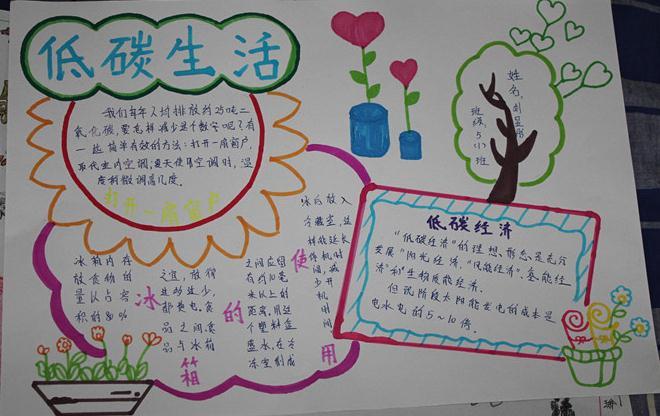 低碳生活
我们每年人均排放约25吨二
氧化碳,要怎样减少这个数字呢?有
一些简单有效的方法:打开一扇窗户,
取代室内空调,夏天使用空调时,温
度稍微调高几度。
打开一扇窗户
姓名:
班级:5小班
低碳经济
"低碳经济"的理想形态是充分
发展"阳光经济"、"风能经济"、氢能经
济"和"生物质能经济。
但现阶段太阳能发电的成本是
电水电的5~10倍。
冰箱的使用
冰箱内存
放食物的
量以占容
积的80%
之宜,放得
过多过少,
都费电。食
品之间,食
品与冰箱
之间应留
有约10毫
米以上的
距离。用这
个塑料盒
盛水,在冷
冻室制成
冰后放入
冷藏室,这
样能延长
停机时
间,减
少开
机时
间